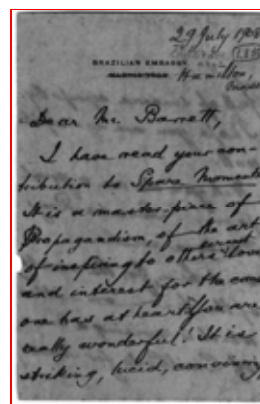 29 July 1908
BRAZILIAN EMBASSY
Hamilton,
Dear Mr. Barrett,
I have read your con-
tribution to Spare Moments
It is a master-piece of
Propagandism, of the art
of inspiring to others
and interest for the
one has at heart. You are
really wonderful! It is
striking, lucid, convincing,